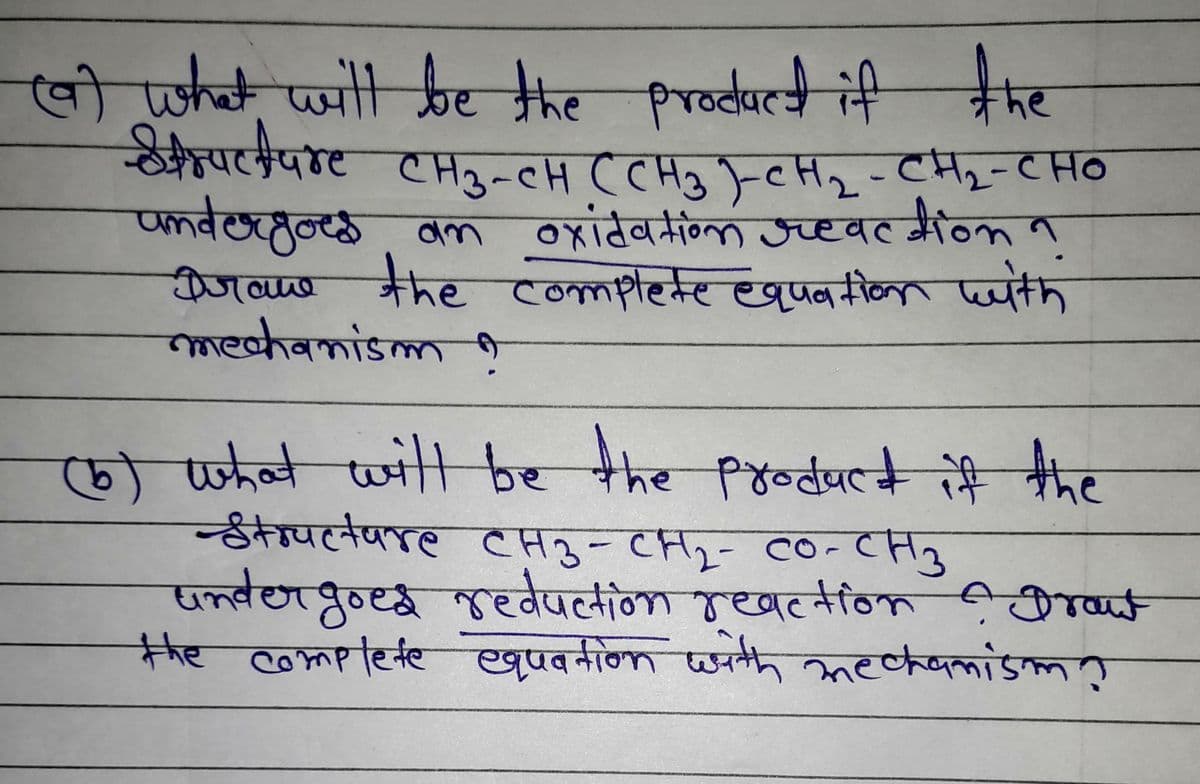 (a) what will be the product if the
structure CH3-CH(CH3)-CH2-CH2-CHO
undergoes an oxidation reaction ?
Draw the complete equation with
mechanism ?
(b) what will be the product if the
structure CH3-CH2-CO-CH3
undergoes reduction reaction ? Draw
the complete equation with mechanism ?